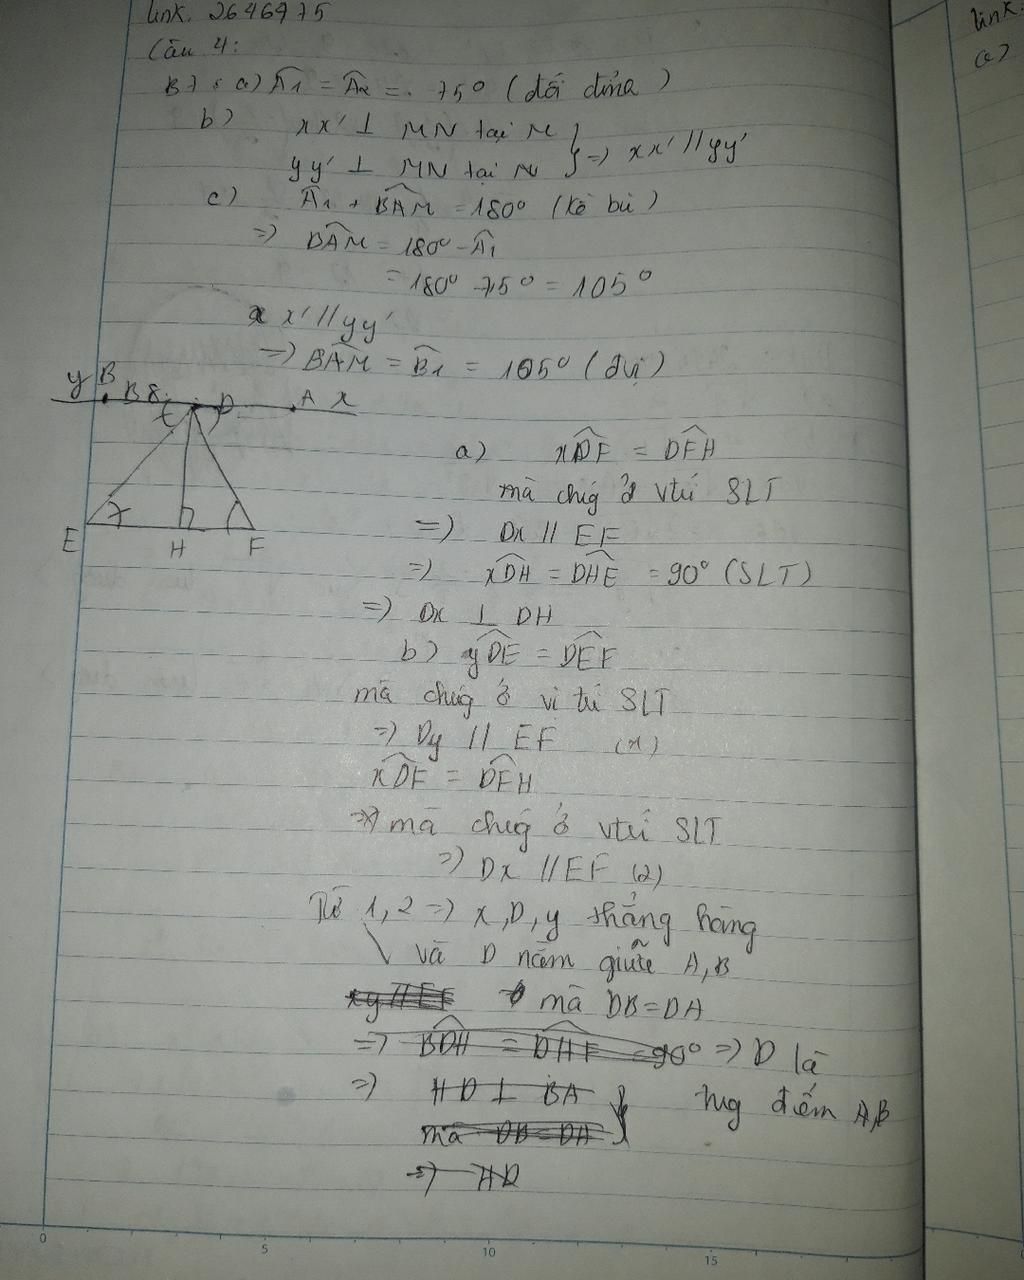 link. 2646975
Câu 4:
B7: a) Â1 = Â2 = 75° (đối đỉnh)
b) xx' ⊥ MN tại M
yy' ⊥ MN tại N } => xx' // yy'
link.
a)
c) Â1 + BÂM = 180° (kề bù)
=> BÂM = 180° - Â1
= 180° - 75° = 105°
x x' // yy'
=> BÂM = B̂1 = 105° (đvị)
y B B8: D A x
E H F
a) xD̂F = DF̂H
mà chúg ở vtrí SLT
=> Dx // EF
=> xD̂H = DĤE = 90° (SLT)
=> Dx ⊥ DH
b) yD̂E = DÊF
mà chúg ở vị trí SLT
=> Dy // EF (1)
xD̂F = DF̂H
=> mà chúg ở vtrí SLT
=> Dx // EF (2)
Từ 1, 2 => x, D, y thẳng hàng
và D nằm giữa A, B
xy // EF mà DB = DA
=> BD̂H = DĤF = 90° => D là
=> HD ⊥ BA } trug điểm A,B
mà DB = DA
=> HD
0 5 10 15